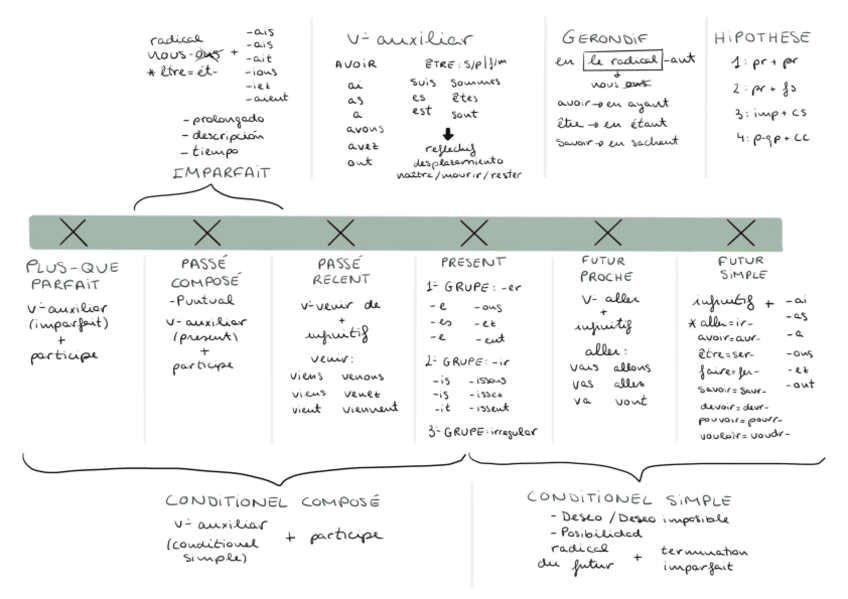 radical
nous-ons + -ais
* être=ét- -ais
-ait
-ions
-iez
-aient
-prolongado
-descripción
-tiempo
IMPARFAIT
V- auxiliar
AVOIR
ai
as
a
avons
avez
ont
ÊTRE: S/P/f/m
suis sommes
es êtes
est sont
reflechif
desplazamiento
naître/mourir/rester
GERONDIF
en le radical -ant
nous ons
avoir→en ayant
être→en étant
savoir→en sachant
HIPOTHESE
1: pr + pr
2: pr + fs
3: imp + cs
4: p-qp + cc
PLUS-QUE
PARFAIT
V- auxiliar
(imparfait)
+
participe
PASSÉ
COMPOSÉ
-Puntual
V- auxiliar
(present)
+
participe
PASSÉ
RECENT
V- venir de
+
infinitif
venir:
viens venons
viens venez
vient viennent
PRESENT
1- GRUPE: -er
-e -ons
-es -ez
-e -ent
2- GRUPE: -ir
-is -issons
-is -issez
-it -issent
3- GRUPE: irregular
FUTUR
PROCHE
V- aller
+
infinitif
aller:
vais allons
vas allez
va vont
FUTUR
SIMPLE
infinitif + -ai
* aller=ir- -as
avoir=aur- -a
être=ser- -ons
faire=fer- -ez
savoir=saur- -ont
devoir=devr-
pouvoir=pourr-
vouloir=voudr-
CONDITIONEL COMPOSÉ
V- auxiliar
(conditionel
simple)
+ participe
CONDITIONEL SIMPLE
-Deseo/Deseo imposible
-Posibilidad
radical
du futur
+
termination
imparfait